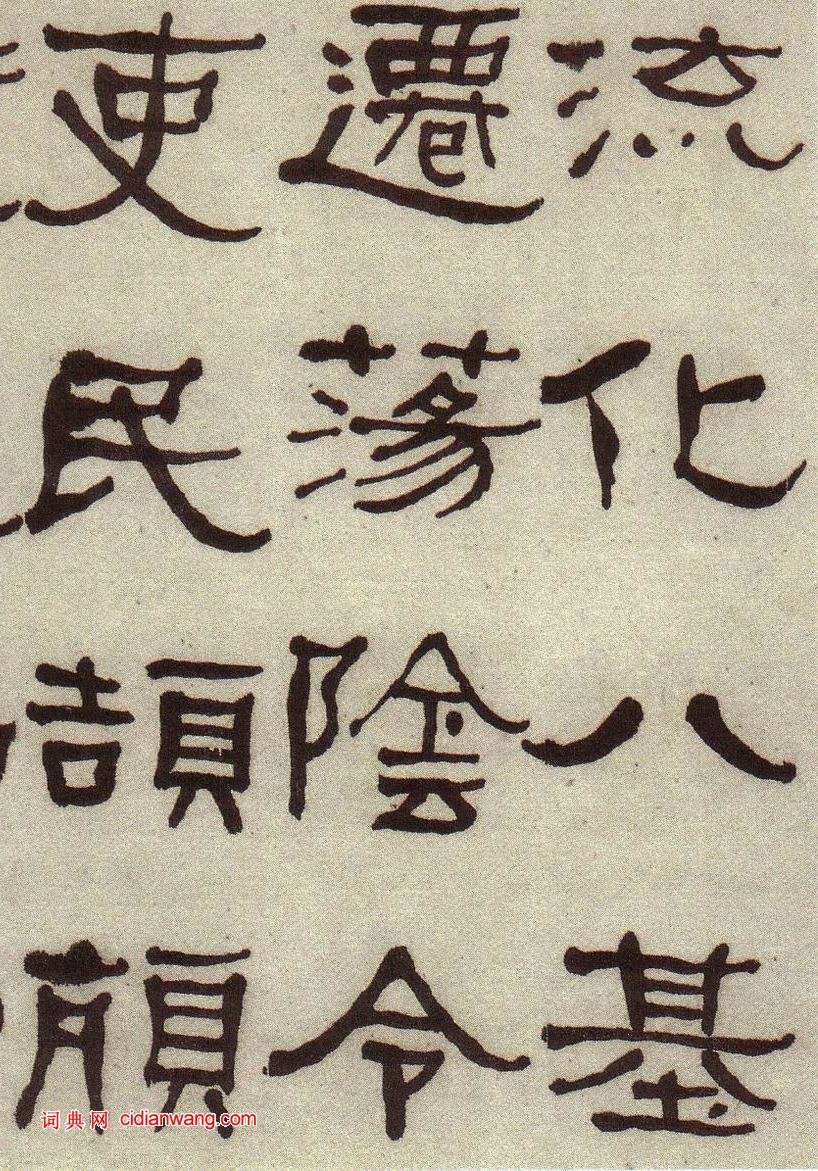 流化八基
遷蕩陰令
吏民頡頏
词典网 cidianwang.com